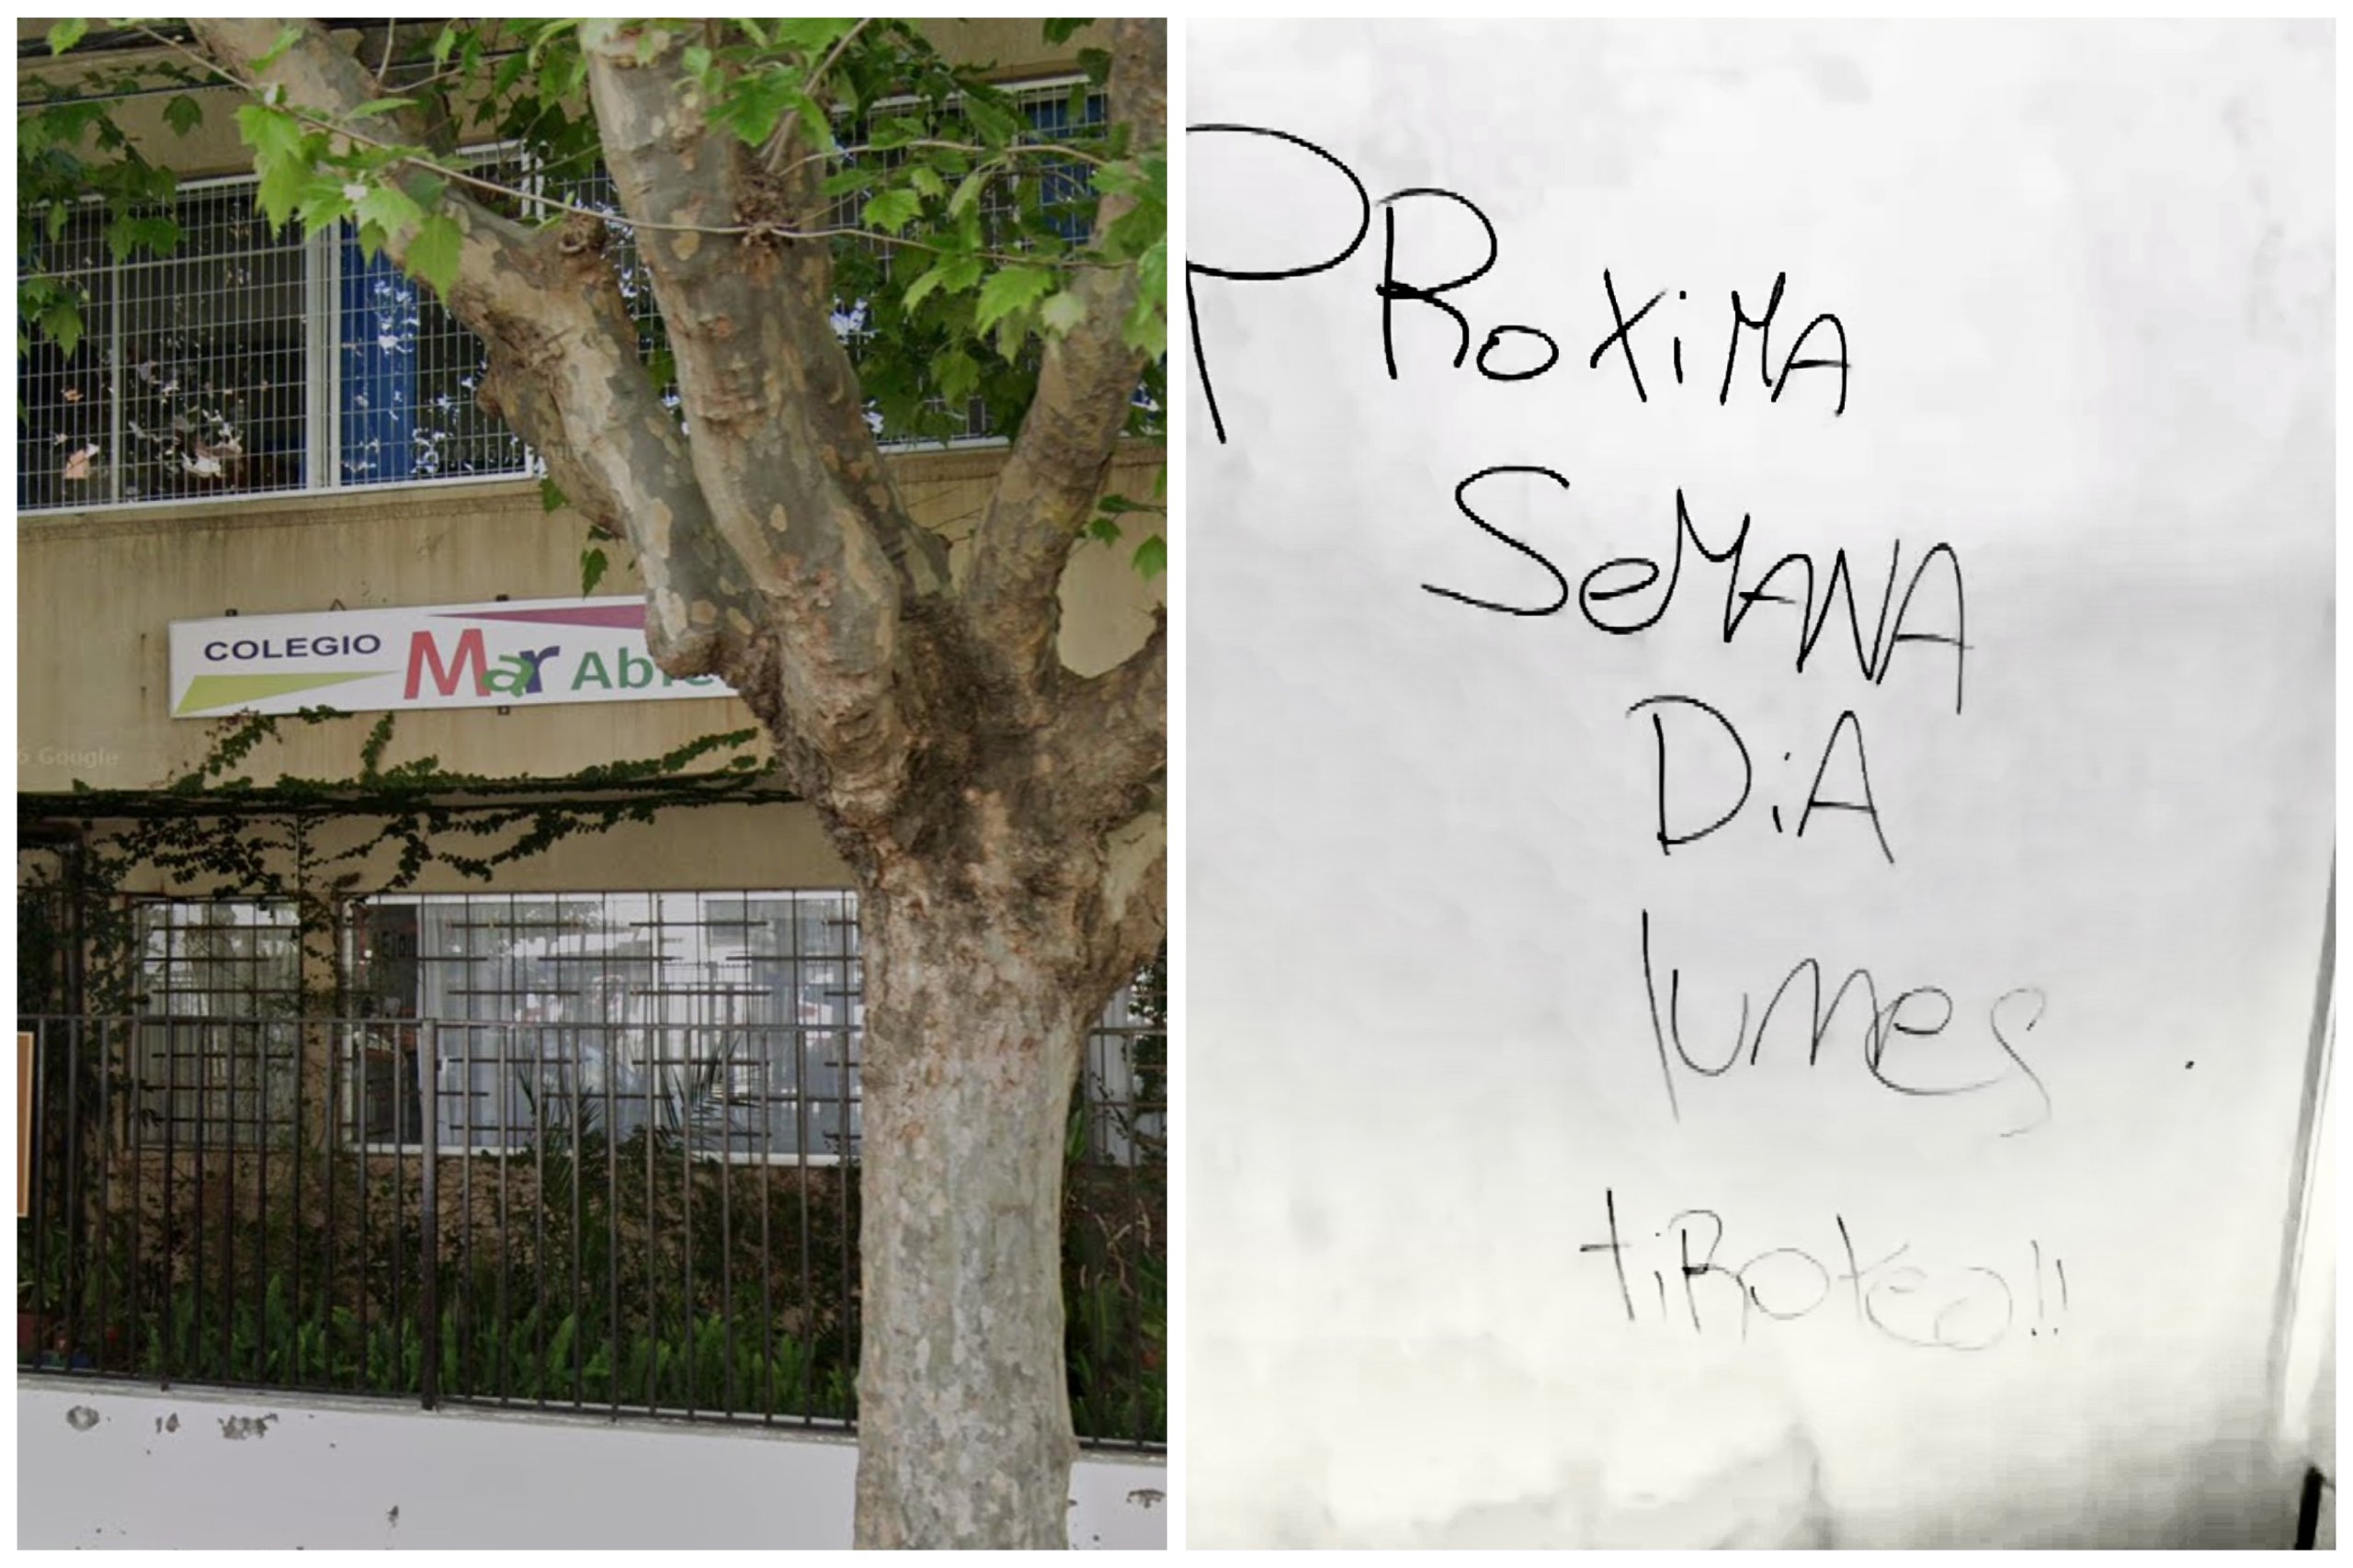 COLEGIO Mar Abie
Google
PROXiMA
SeMANA
DiA
lunes
tiRoteo!!